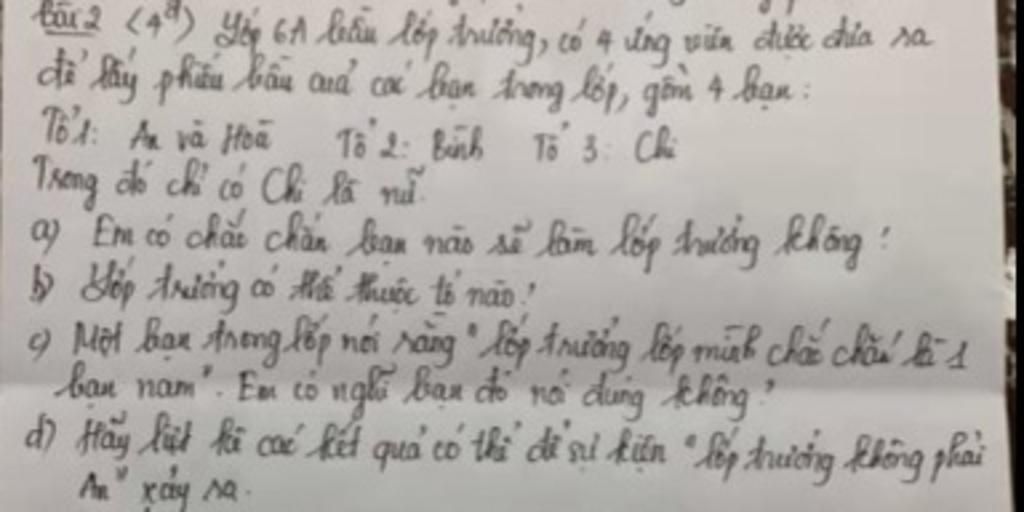 Bài 2 (4đ) Lớp 6A bầu lớp trưởng, có 4 ứng viên được đưa ra
để lấy phiếu bầu của các bạn trong lớp, gồm 4 bạn:
Tổ 1: An và Hoà Tổ 2: Bình Tổ 3: Chi
Trong đó chỉ có Chi là nữ.
a) Em có chắc chắn bạn nào sẽ làm lớp trưởng không?
b) Lớp trưởng có thể thuộc tổ nào?
c) Một bạn trong lớp nói rằng "lớp trưởng lớp mình chắc chắn là 1
bạn nam". Em có nghĩ bạn đó nói đúng không?
d) Hãy liệt kê các kết quả có thể để sự kiện "lớp trưởng không phải
An" xảy ra.